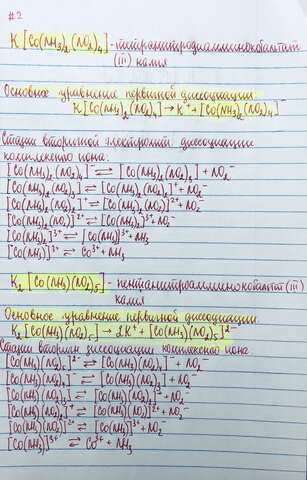 #2
K[Co(NH3)2(NO2)4] - тетранитродиамминокобальтат
(III) калия
Основное уравнение первичной диссоциации:
K[Co(NH3)2(NO2)4] → K⁺ + [Co(NH3)2(NO2)4]⁻
Стадии вторичной электролит. диссоциации
комплексного иона:
[Co(NH3)2(NO2)4]⁻ ⇌ [Co(NH3)2(NO2)3] + NO2⁻
[Co(NH3)2(NO2)3] ⇌ [Co(NH3)2(NO2)2]⁺ + NO2⁻
[Co(NH3)2(NO2)2]⁺ ⇌ [Co(NH3)2(NO2)]²⁺ + NO2⁻
[Co(NH3)2(NO2)]²⁺ ⇌ [Co(NH3)2]³⁺ + NO2⁻
[Co(NH3)2]³⁺ ⇌ [Co(NH3)]³⁺ + NH3
[Co(NH3)]³⁺ ⇌ Co³⁺ + NH3
K2[Co(NH3)(NO2)5] - пентанитроамминокобальтат(III)
калия
Основное уравнение первичной диссоциации
K2[Co(NH3)(NO2)5] → 2K⁺ + [Co(NH3)(NO2)5]²⁻
Стадии вторичн. диссоциации комплексного иона
[Co(NH3)(NO2)5]²⁻ ⇌ [Co(NH3)(NO2)4]⁻ + NO2⁻
[Co(NH3)(NO2)4]⁻ ⇌ [Co(NH3)(NO2)3] + NO2⁻
[Co(NH3)(NO2)3] ⇌ [Co(NH3)(NO2)2]⁺ + NO2⁻
[Co(NH3)(NO2)2]⁺ ⇌ [Co(NH3)(NO2)]²⁺ + NO2⁻
[Co(NH3)(NO2)]²⁺ ⇌ [Co(NH3)]³⁺ + NO2⁻
[Co(NH3)]³⁺ ⇌ Co³⁺ + NH3